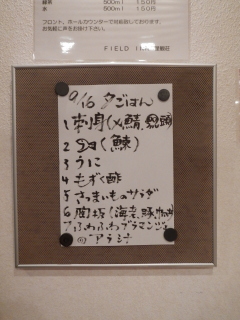 緑茶 500ml 150円
水 500ml 150円
フロント、ホールカウンターで対応致しております。
お気軽に声をお掛け下さい。
FIELD INN
9/16 夕ごはん
1 刺身(〆鯖、
2
3 うに
4 もずく酢
5 さつまいものサラダ
6 陶板(海老、豚、
7 ふわふわブラマンジェ